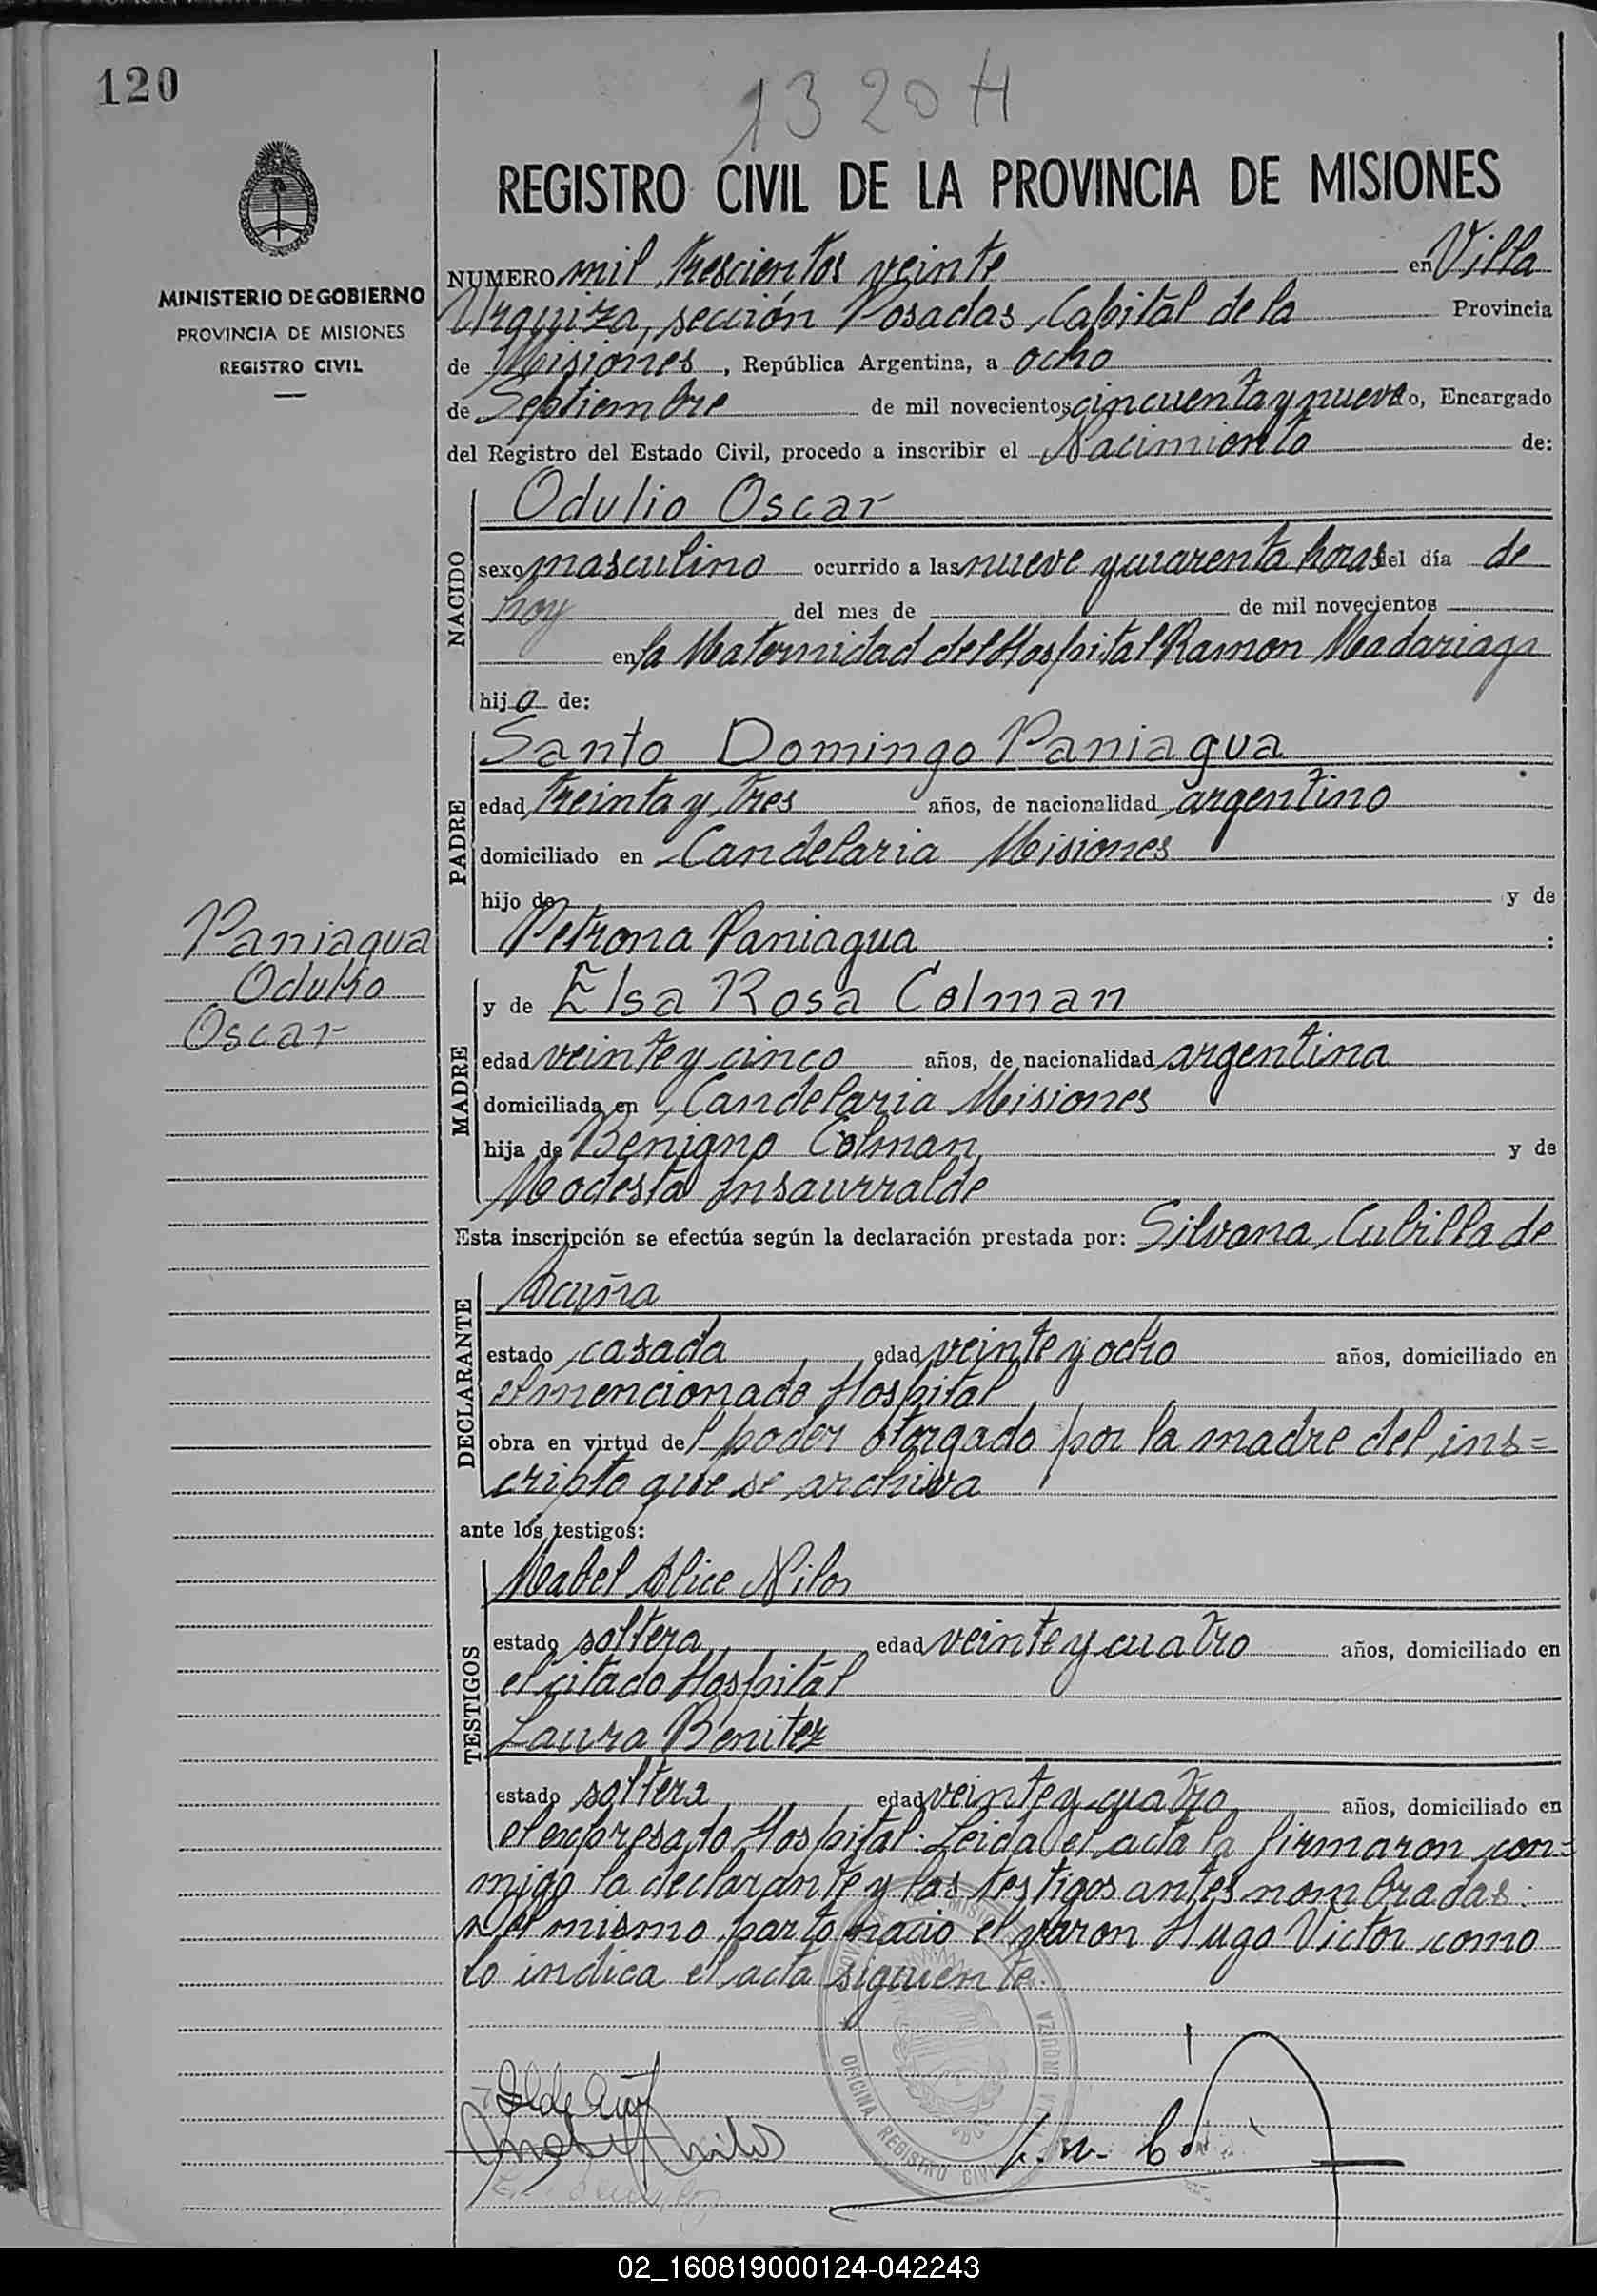 120
1320 H
MINISTERIO DE GOBIERNO
PROVINCIA DE MISIONES
REGISTRO CIVIL
REGISTRO CIVIL DE LA PROVINCIA DE MISIONES
NUMERO mil trescientos veinte en Villa
Urquiza, sección Posadas, Capital de la Provincia
de Misiones, República Argentina, a ocho
de Septiembre de mil novecientos cincuenta y nueve o, Encargado
del Registro del Estado Civil, procedo a inscribir el Nacimiento de:
NACIDO
Odulio Oscar
sexo masculino ocurrido a las nueve y cuarenta horas del día de
hoy del mes de de mil novecientos
en la Maternidad del Hospital Ramon Madariaga
hijo de:
PADRE
Santo Domingo Paniagua
edad treinta y tres años, de nacionalidad argentino
domiciliado en Candelaria Misiones
hijo de y de
Petrona Paniagua :
Paniagua
Odulio
Oscar
MADRE
y de Elsa Rosa Colman
edad veinte y cinco años, de nacionalidad argentina
domiciliada en Candelaria Misiones
hija de Benigno Colman y de
Modesta Insaurralde
Esta inscripción se efectúa según la declaración prestada por: Silvana Cubilla de
DECLARANTE
Acuña
estado casada edad veinte y ocho años, domiciliado en
el mencionado Hospital
obra en virtud del poder otorgado por la madre del ins=
cripto que se archiva
ante los testigos:
TESTIGOS
Mabel Alice Nilos
estado soltera edad veinte y cuatro años, domiciliado en
el citado Hospital
Laura Benitez
estado soltera edad veinte y cuatro años, domiciliado en
el expresado Hospital. Leida el acta la firmaron con=
migo la declarante y las testigos antes nombradas.
Del mismo parto nacio el varon Hugo Victor como
lo indica el acta siguiente.
OFICINA REGISTRO CIVIL
02_160819000124-042243